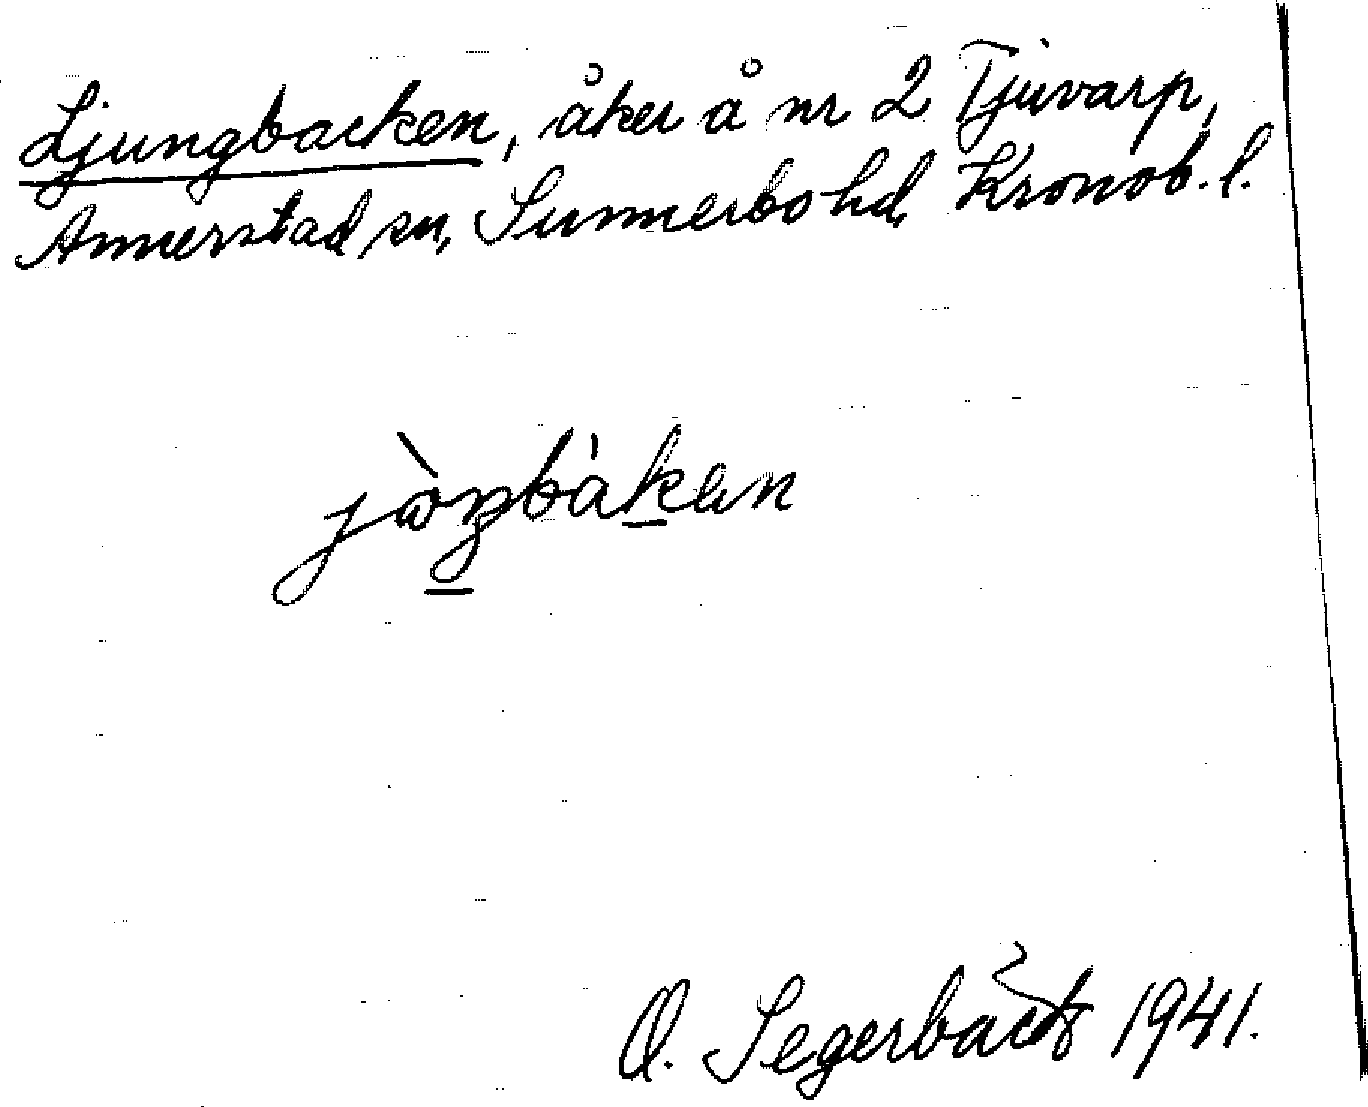 Ljungbacken, åker å nr 2 Tjuvarp,
Annerstad sn, Sunnerbo hd, Kronob. l.
O. Segerbäck 1941.